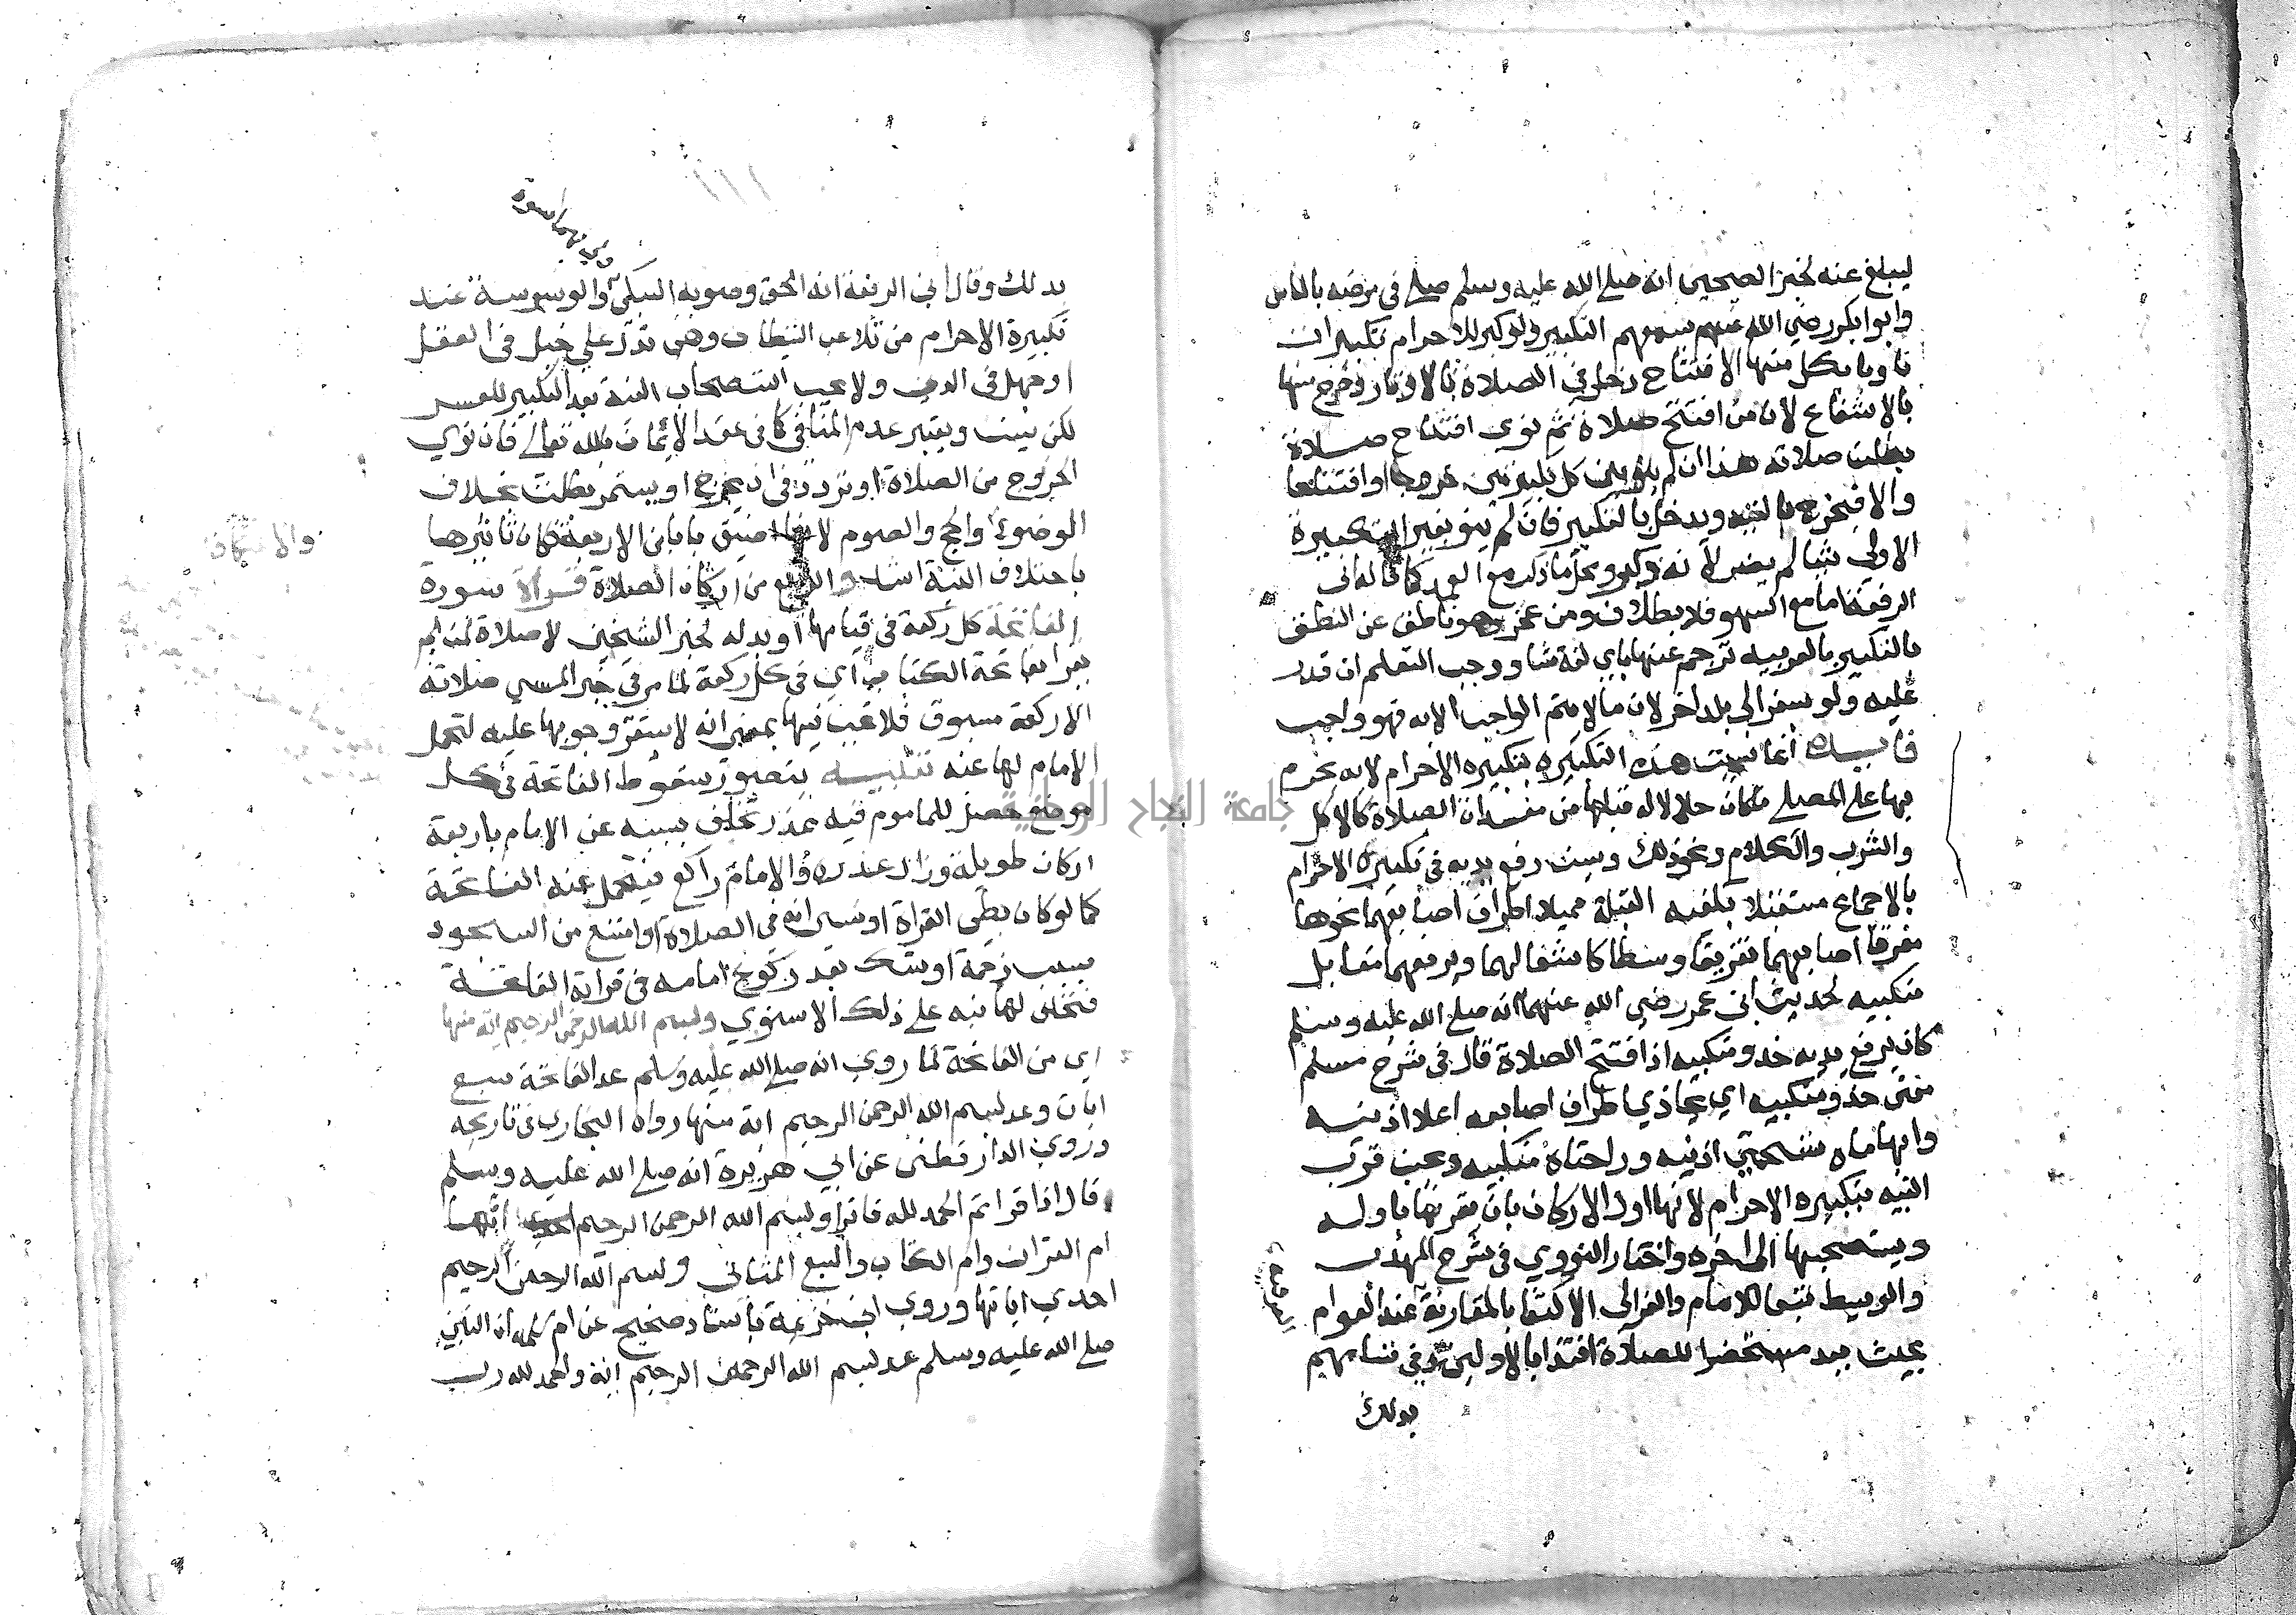 ليبلغ عنه لخبر الصحيحين انه صلى الله عليه وسلم صلى في مرضه بالناس
وابوا بكر رضي الله عنهم يسمعهم التكبير ولو كبر للاحرام تكبيرات
ناويا بكل منها الافتتاح دخل في الصلاة بالاوتار وخرج منها
بالاشفاع لان من افتتح صلاة ثم نوى افتتاح صلاة
بطلت صلاته هذا ان لم ينو بين كل تكبيرتين خروجا او افتتاحا
والا فيخرج بالنيه ويدخل بالتكبير فان لم ينو بغير التكبيرة
الاولى شيا لم يضر لانه ذكر ومحل ما ذكر مع العمد كما قاله ابن
الرفعة اما مع السهو فلا بطلان ومن عجز وهو ناطق عن النطق
بالتكبير بالعربيه ترجم عنها باي لغة شا ووجب التعلم ان قدر
عليه ولو بسفر الى بلد اخر لان ما لا يتم الواجب الا به فهو واجب
فايده انما سميت هذه التكبيره بتكبيره الاحرام لانه يحرم
بها على المصلي ما كان حلالا له قبلها من مفسدات الصلاة كالاكل
والشرب والكلام ونحو ذلك ويسن رفع يديه في تكبيرة الاحرام
بالاجماع مستقبلا بكفيه القبلة مميلا اطراف اصابعهما نحوها
مفرقا اصابعهما تفريقا وسطا كاشفا لهما ويرفعهما مقابل
منكبيه لحديث ابن عمر رضي الله عنهما انه صلى الله عليه وسلم
كان يرفع يديه حذو منكبيه اذا افتتح الصلاة قال في شرح مسلم
معنى حذو منكبيه اي تحاذي اطراف اصابعه اعلا اذنيه
وابهاماه شحمتي اذنيه وراحتاه منكبيه ويجب قرن
النيه بتكبيره الاحرام لانها اول الاركان بان يقرنها باوله
ويستصحبها الى اخره واختار النووي في شرح المهذب
والوسيط تبعا للامام والغزالي الاكتفا بالمقارنة عند العوام
بحيث يعد مستحضرا للصلاة اقتدا بالاولين في تسامحهم
العرفية
بذلك
بذلك وقال ابن الرفعة انه الحق وصوبه السبكي والوسوسة عند
تكبيرة الاحرام من تلاعب الشيطان وهي تدل على خبل في العقل
او جهل في الدين ولا يجب استصحاب النية بعد التكبير للعسر
لكن يسن ويعتبر عدم المنافي كما في عقد الايمان بالله تعالى فان نوى
الخروج من الصلاة او تردد في ان يخرج او يستمر بطلت بخلاف
الوضوء والحج والصوم لانها اضيق بابا من الاربعة فكان تاثيرها
والاعتكاف
باختلاف النية اشد والرابع من اركان الصلاة قراة سورة
الفاتحة كل ركعة في قيامها او بدله لخبر الشيخين لا صلاة لمن لم
يقرا بفاتحة الكتاب اي في كل ركعة لما مر في خبر المسي صلاته
الا ركعة مسبوق فلا تجب فيها بمعنى انه لا يستقر وجوبها عليه لتحمل
الامام لها عنه تنبيه يتصور سقوط الفاتحة في كل
موضع حصل للماموم فيه عذر تخلف بسببه عن الامام باربعة
اركان طويلة وزال عذره والامام راكع فيتحمل عنه الفاتحة
كما لو كان بطي القراة او نسي انه في الصلاة او امتنع من السجود
بسبب زحمة او شك بعد ركوع امامه في قراة الفاتحة
فتخلف لها نبه على ذلك الاسنوي وبسم الله الرحمن الرحيم اية منها
اي من الفاتحة لما روي انه صلى الله عليه وسلم عد الفاتحة سبع
ايات وعد بسم الله الرحمن الرحيم اية منها رواه البخاري في تاريخه
وروى الدارقطني عن ابي هريرة انه صلى الله عليه وسلم
قال اذا قراتم الحمد لله فاقروا بسم الله الرحمن الرحيم انها
ام القران وام الكتاب والسبع المثاني وبسم الله الرحمن الرحيم
احدى اياتها وروى ابن خزيمة باسناد صحيح عن ام سلمة ان النبي
صلى الله عليه وسلم عد بسم الله الرحمن الرحيم اية والحمد لله رب
جامعة النجاح الوطنية